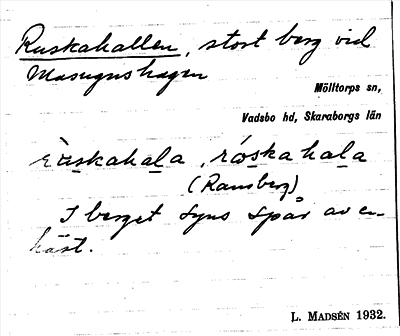 Ruskahallen, stort berg vid
Masugnshagen
Mölltorps sn,
Vadsbo hd, Skaraborgs län
(Ransberg)
I berget syns spår av en
häst.
L. MADSÉN 1932.